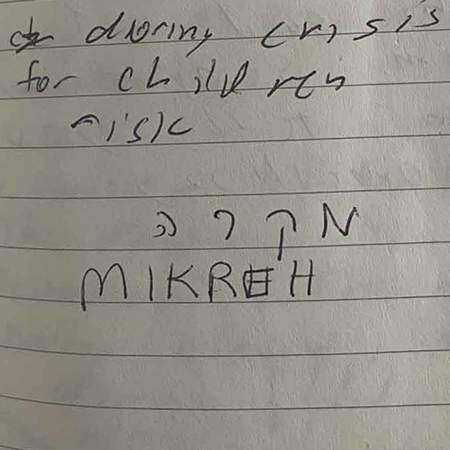 during crisis
for children
risk
מקרה
MIKREH